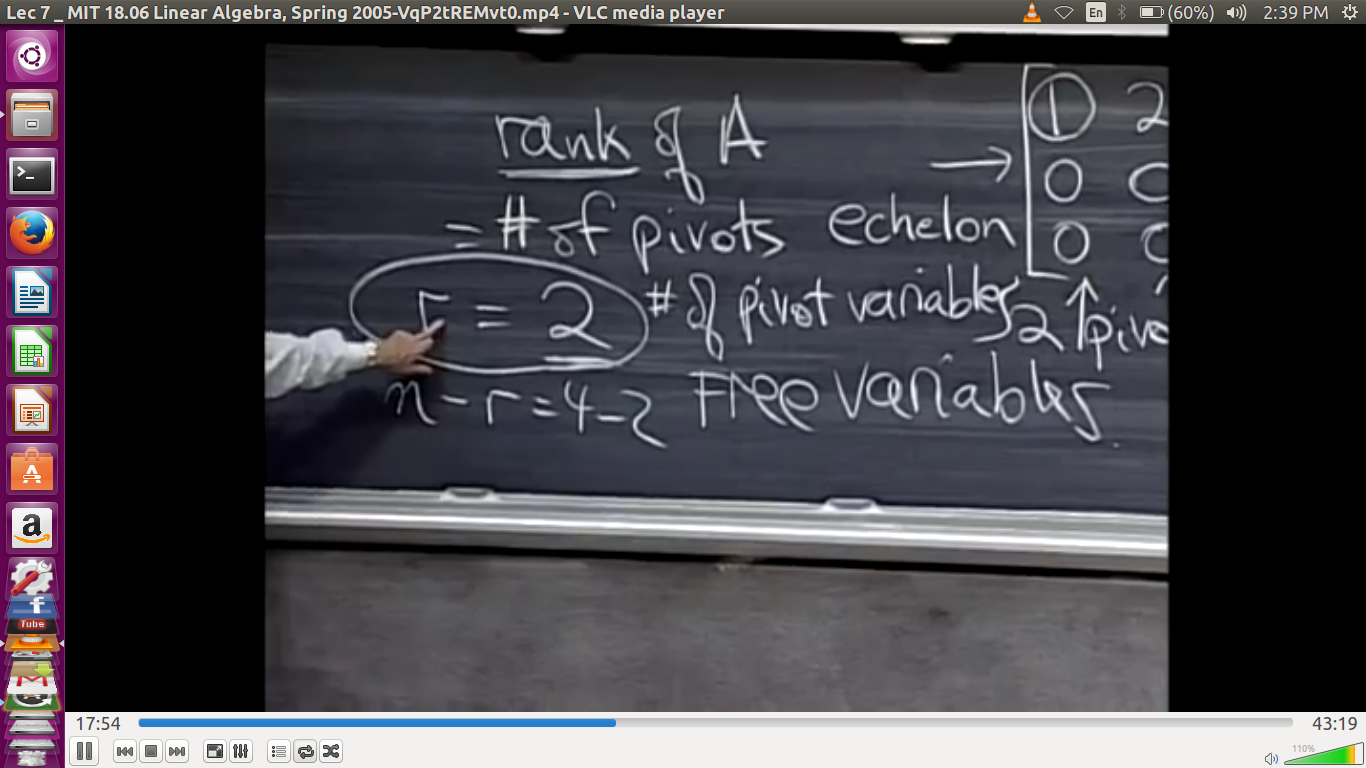 Lec 7 _ MIT 18.06 Linear Algebra, Spring 2005-VqP2tREMvt0.mp4 - VLC media player
En (60%) 2:39 PM
rank of A
= # of pivots
r = 2
# of pivot variables
n - r = 4 - 2 Free variables.
echelon
1 2
0 0
0 0
2 pivo
f
Tube
a
17:54
43:19
110%